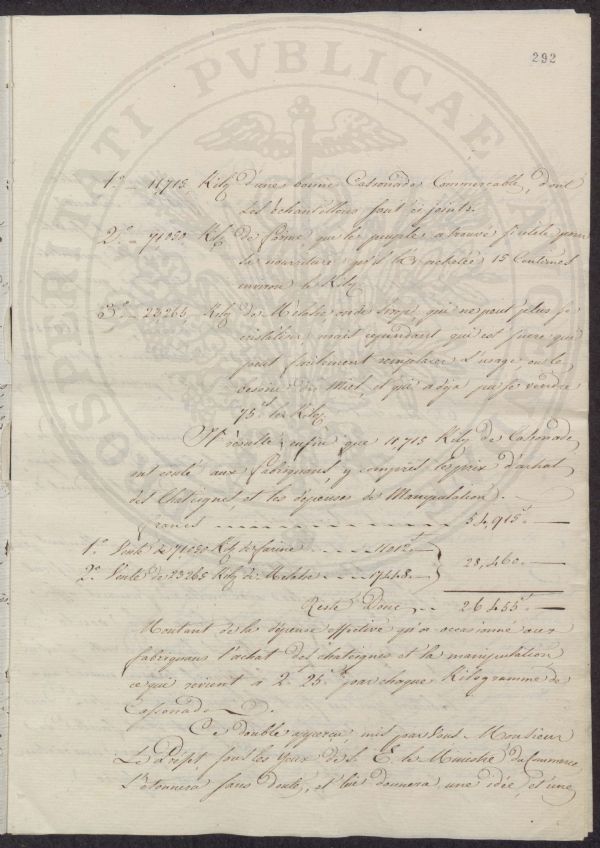 292
PROSPERITATI PVBLICAE
1.° — 11715 Kilg d'une bonne Cassonade Commerçable, dont
les échantillons sont ci joints.
2.° — 71050 Kilg de farine que le peuple a trouvé si utile pour
sa nourriture qu'il l'a achetée 15 Centimes
environ le Kilg.
3.° — 23265 Kilg de Melasse ou de Sirop, qui ne peut plus se
cristaliser, mais cependant qui est sucre que
peut facilement remplacer l'usage ou le
besoin du Miel, et qui a déja pu se vendre
75 ct le Kilg.
Il résulte enfin que 11,715 Kilg de Cassonade
ont couté aux fabriquants, y compris le prix d'achat
des Chataignes et les dépenses de Manipulation.
francs 54,915.
1.° Vente de 71050 Kilg de farine 11012
2.° Vente de 23265 Kilg de Melasse 17448
28,460.
Reste Donc 26455.
Montant de la dépense effective qu'a occasionné aux
fabriquans l'achat des chataignes et la manipulation
ce qui revient à 2 25 par chaque Kilogramme de
Cassonade.
Ce double apperçu mis par Vous Monsieur
Le Préfet sous les yeux de S. E. le Ministre du Commerce
l'étonnera sans doute, et lui donnera une idée, et une